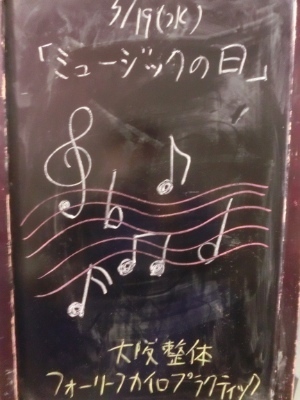 3/19(水)
「ミュージックの日」
大塚整体
フォーリーフカイロプラクティック